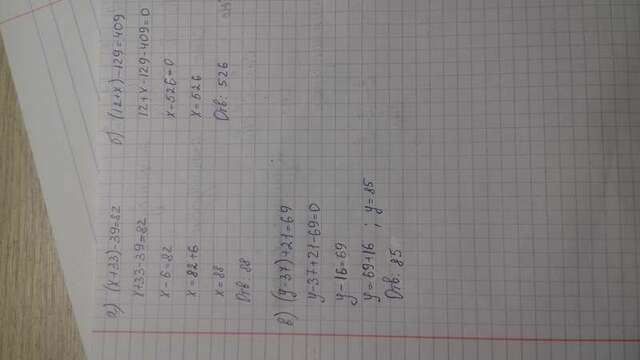 а) (x+33)-39=82
x+33-39=82
x-6=82
x=82+6
x=88
Отв: 88
б) (12+x)-129=409
12+x-129-409=0
x-526=0
x=526
Отв: 526
в) (y-37)+21=69
y-37+21-69=0
y-16=69
y=69+16 ; y=85
Отв: 85